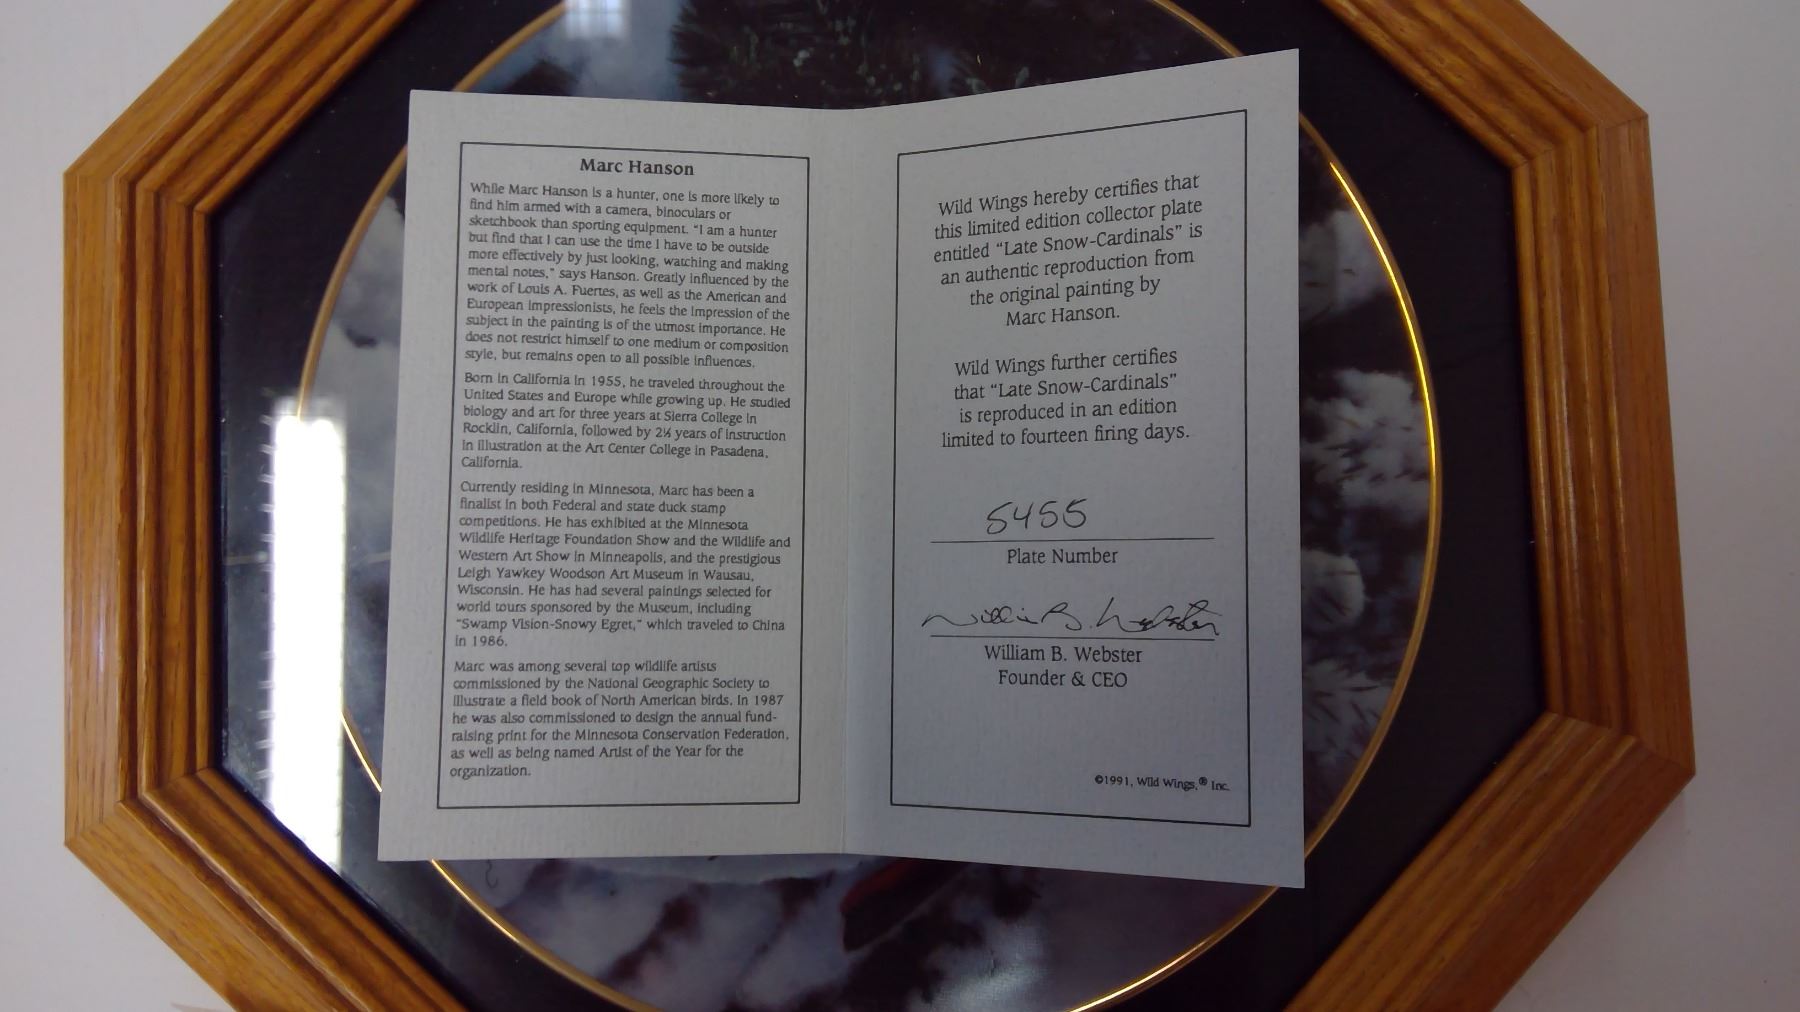 Marc Hanson
While Marc Hanson is a hunter, one is more likely to
find him armed with a camera, binoculars or
sketchbook than sporting equipment. "I am a hunter
but find that I can use the time I have to be outside
more effectively by just looking, watching and making
mental notes," says Hanson. Greatly influenced by the
work of Louis A. Fuertes, as well as the American and
European Impressionists, he feels the impression of the
subject in the painting is of the utmost importance. He
does not restrict himself to one medium or composition
style, but remains open to all possible influences.
Born in California in 1955, he traveled throughout the
United States and Europe while growing up. He studied
biology and art for three years at Sierra College in
Rocklin, California, followed by 2½ years of instruction
in illustration at the Art Center College in Pasadena,
California.
Currently residing in Minnesota, Marc has been a
finalist in both Federal and state duck stamp
competitions. He has exhibited at the Minnesota
Wildlife Heritage Foundation Show and the Wildlife and
Western Art Show in Minneapolis, and the prestigious
Leigh Yawkey Woodson Art Museum in Wausau,
Wisconsin. He has had several paintings selected for
world tours sponsored by the Museum, including
"Swamp Vision-Snowy Egret," which traveled to China
in 1986.
Marc was among several top wildlife artists
commissioned by the National Geographic Society to
illustrate a field book of North American birds. In 1987
he was also commissioned to design the annual fund-
raising print for the Minnesota Conservation Federation,
as well as being named Artist of the Year for the
organization.
Wild Wings hereby certifies that
this limited edition collector plate
entitled "Late Snow-Cardinals" is
an authentic reproduction from
the original painting by
Marc Hanson.
Wild Wings further certifies
that "Late Snow-Cardinals"
is reproduced in an edition
limited to fourteen firing days.
5455
Plate Number
William B. Webster
William B. Webster
Founder & CEO
©1991, Wild Wings,® Inc.